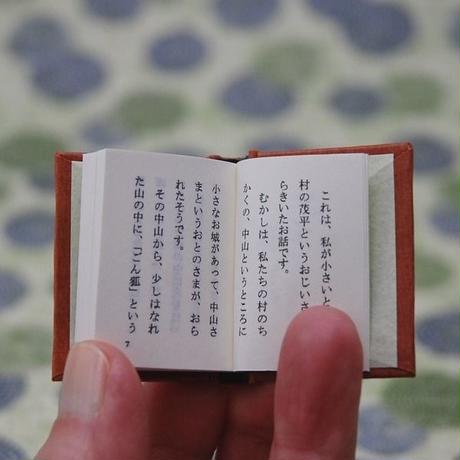 これは、私が小さいと
村の茂平というおじいさ
らきいたお話です。
むかしは、私たちの村のち
かくの、中山というところに
小さなお城があって、中山さ
まというおとのさまが、おら
れたそうです。
その中山から、少しはなれ
た山の中に、「ごん狐」という
7